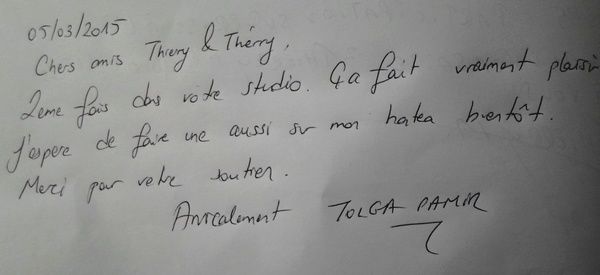 05/03/2015
Chers amis Thierry & Thérry,
2eme fois dans votre studio. Ça fait vraiment plaisir
J'espere de faire une aussi sur mon bientôt.
Merci pour votre soutien.
Amicalement TOLGA PAMIR